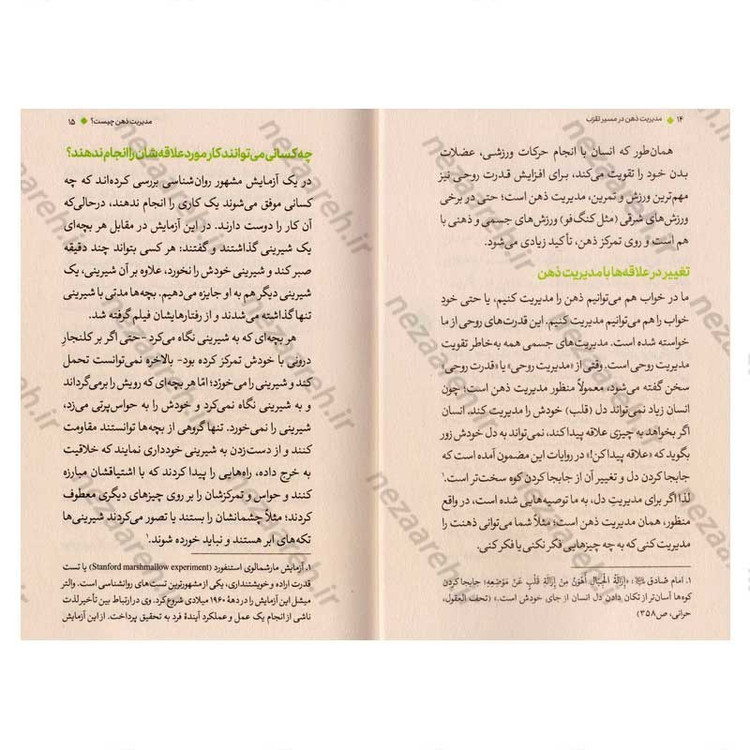 ۱۴ ◆ مدیریت ذهن در مسیر تقرب
همان‌طور که انسان با انجام حرکات ورزشی، عضلات
بدن خود را تقویت می‌کند، برای افزایش قدرت روحی نیز
مهم‌ترین ورزش و تمرین، مدیریت ذهن است؛ حتی در برخی
ورزش‌های شرقی (مثل کنگ‌فو) ورزش‌های جسمی و ذهنی با
هم است و روی تمرکز ذهن، تأکید زیادی می‌شود.
تغییر در علاقه‌ها با مدیریت ذهن
ما در خواب هم می‌توانیم ذهن را مدیریت کنیم، یا حتی خودِ
خواب را هم می‌توانیم مدیریت کنیم. این قدرت‌های روحی از ما
خواسته شده است. مدیریت‌های جسمی همه به‌خاطر تقویت
مدیریت روحی است. وقتی از «مدیریت روحی» یا «قدرت روحی»
سخن گفته می‌شود، معمولاً منظور مدیریت ذهن است؛ چون
انسان زیاد نمی‌تواند دل (قلب) خودش را مدیریت کند. انسان
اگر بخواهد به چیزی علاقه پیدا کند، نمی‌تواند به دل خودش زور
بگوید که «علاقه پیدا کن!» در روایات این مضمون آمده است که
جابجا کردن دل و تغییر آن از جابجا کردن کوه سخت‌تر است.۱
لذا اگر برای مدیریتِ دل، به ما توصیه‌هایی شده است، در واقع
منظور، همان مدیریت ذهن است؛ مثلاً شما می‌توانی ذهنت را
مدیریت کنی که به چه چیزهایی فکر نکنی یا فکر کنی.
۱. امام صادق: «إِزَالَةُ الْجِبَالِ أَهْوَنُ مِنْ إِزَالَةِ قَلْبٍ عَنْ مَوْضِعِهِ؛ جابجا کردن
کوه‌ها آسان‌تر از تکان دادن دل انسان از جای خودش است.» (تحف العقول،
حرانی، ص۳۵۸)
مدیریت ذهن چیست؟ ◆ ۱۵
چه کسانی می‌توانند کار مورد علاقه‌شان را انجام ندهند؟
در یک آزمایش مشهور روان‌شناسی بررسی کرده‌اند که چه
کسانی موفق می‌شوند یک کاری را انجام ندهند، درحالی‌که
آن کار را دوست دارند. در این آزمایش در مقابل هر بچه‌ای
یک شیرینی گذاشتند و گفتند: هر کسی بتواند چند دقیقه
صبر کند و شیرینی خودش را نخورد، علاوه بر آن شیرینی، یک
شیرینی دیگر هم به او جایزه می‌دهیم. بچه‌ها مدتی با شیرینی
تنها گذاشته می‌شدند و از رفتارهایشان فیلم گرفته شد.
هر بچه‌ای که به شیرینی نگاه می‌کرد -حتی اگر بر کلنجارِ
درونی با خودش تمرکز کرده بود- بالاخره نمی‌توانست تحمل
کند و شیرینی را می‌خورد؛ امّا هر بچه‌ای که رویش را برمی‌گرداند
و به شیرینی نگاه نمی‌کرد و خودش را به حواس‌پرتی می‌زد،
شیرینی را نمی‌خورد. تنها گروهی از بچه‌ها توانستند مقاومت
کنند و از دست‌زدن به شیرینی خودداری نمایند که خلاقیت
به خرج داده، راه‌هایی را پیدا کردند که با اشتیاقشان مبارزه
کنند و حواس و تمرکزشان را بر روی چیزهای دیگری معطوف
کردند؛ مثلاً چشمانشان را بستند یا تصور می‌کردند شیرینی‌ها
تکه‌های ابر هستند و نباید خورده شوند.۱
۱. آزمایش مارشمالوی استنفورد (Stanford marshmallow experiment) یا تست
قدرت اراده و خویشتنداری، یکی از مشهورترین تست‌های روانشناسی است. والتر
میشل این آزمایش را در دههٔ ۱۹۶۰ میلادی شروع کرد. وی در ارتباط بین تأخیر لذت
ناشی از انجام یک عمل و عملکرد آیندهٔ فرد به تحقیق پرداخت. از این آزمایش
nezaareh.ir